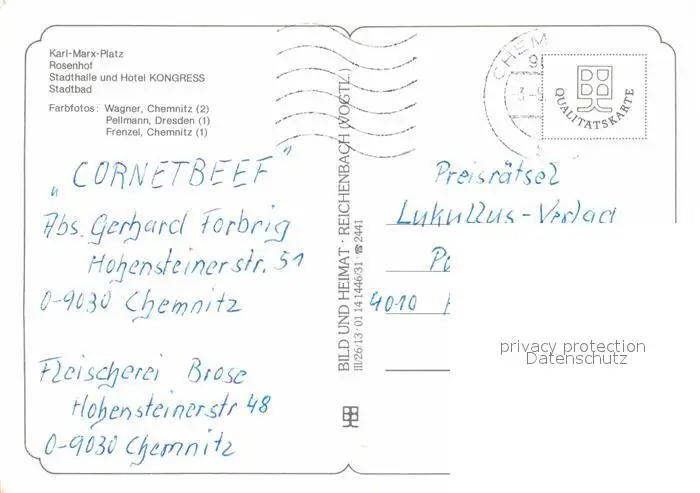 Karl-Marx-Platz
Rosenhof
Stadthalle und Hotel KONGRESS
Stadtbad
Farbfotos: Wagner, Chemnitz (2)
Pellmann, Dresden (1)
Frenzel, Chemnitz (1)
„CORNETBEEF”
Abs. Gerhard Forbrig
Hohensteinerstr. 51
0-9030 Chemnitz
Fleischerei Brose
Hohensteinerstr 48
0-9030 Chemnitz
BILD UND HEIMAT · REICHENBACH (VOGTL.)
III/26/13 · 01 14 1446/31 · ☎ 2441
CHEM
QUALITÄTSKARTE
Preisrätsel
Lukullus-Verlag
4010
privacy protection
Datenschutz